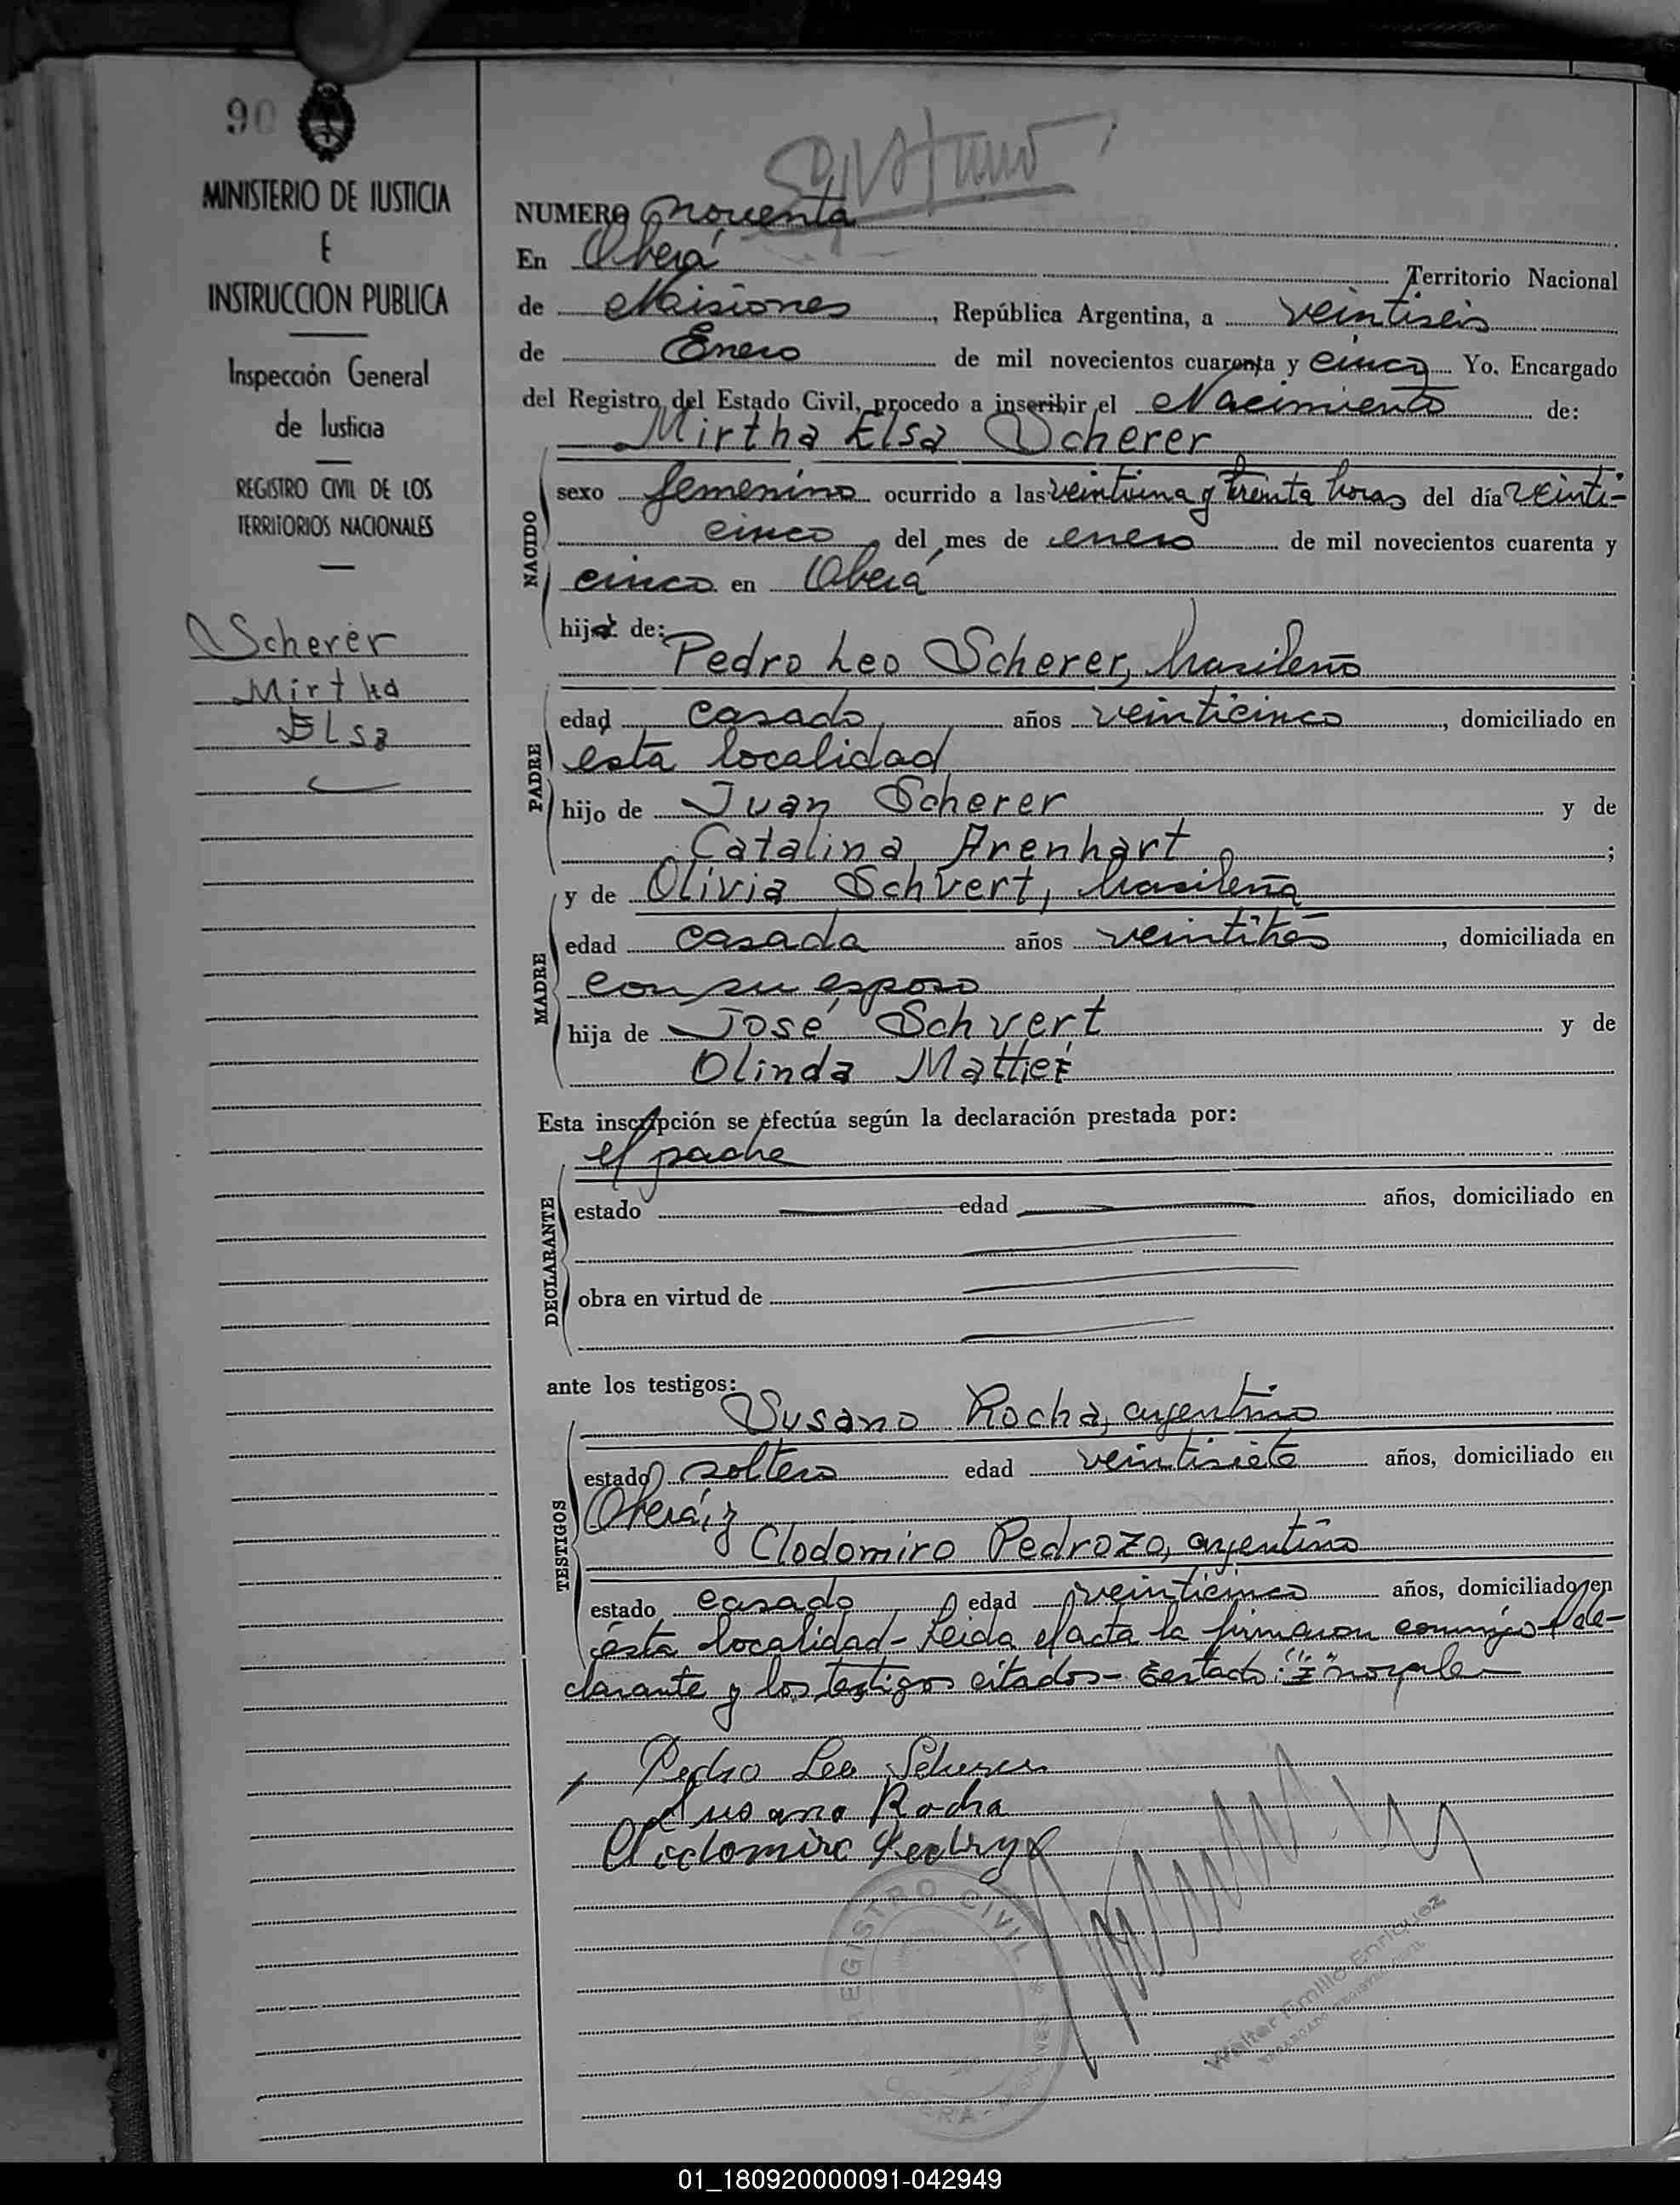 90
MINISTERIO DE JUSTICIA
E
INSTRUCCION PUBLICA
Inspección General
de Justicia
REGISTRO CIVIL DE LOS
TERRITORIOS NACIONALES
Scherer
Mirtha
Elsa
NUMERO noventa
En Oberá Territorio Nacional
de Misiones, República Argentina, a veintiseis
de Enero de mil novecientos cuarenta y cinco Yo, Encargado
del Registro del Estado Civil, procedo a inscribir el Nacimiento de:
Mirtha Elsa Scherer
NACIDO
sexo femenino ocurrido a las veintiuna y treinta horas del día veinti-
cinco del mes de enero de mil novecientos cuarenta y
cinco en Oberá
hija de:
Pedro Leo Scherer, brasileño
PADRE
edad casado, años veinticinco, domiciliado en
esta localidad
hijo de Juan Scherer y de
Catalina Arenhart;
y de Olivia Schvert, brasileña
MADRE
edad casada años veintitres, domiciliada en
con su esposo
hija de José Schvert y de
Olinda Mattiez
Esta inscripción se efectúa según la declaración prestada por:
el padre
DECLARANTE
estado edad años, domiciliado en
obra en virtud de
ante los testigos:
Susano Rocha, argentino
TESTIGOS
estado soltero edad veintisiete años, domiciliado en
Oberá, y
Clodomiro Pedrozo, argentino
estado casado edad veinticinco años, domiciliado en
ésta localidad - Leida el acta la firmaron conmigo el de-
clarante y los testigos citados - Testado: "z" no vale -
Pedro Leo Scherer
Susano Rocha
Clodomiro Pedrozo
REGISTRO CIVIL
OBERA - MISIONES
Walter Emilio Enriquez
ENCARGADO REGISTRO CIVIL
01_180920000091-042949